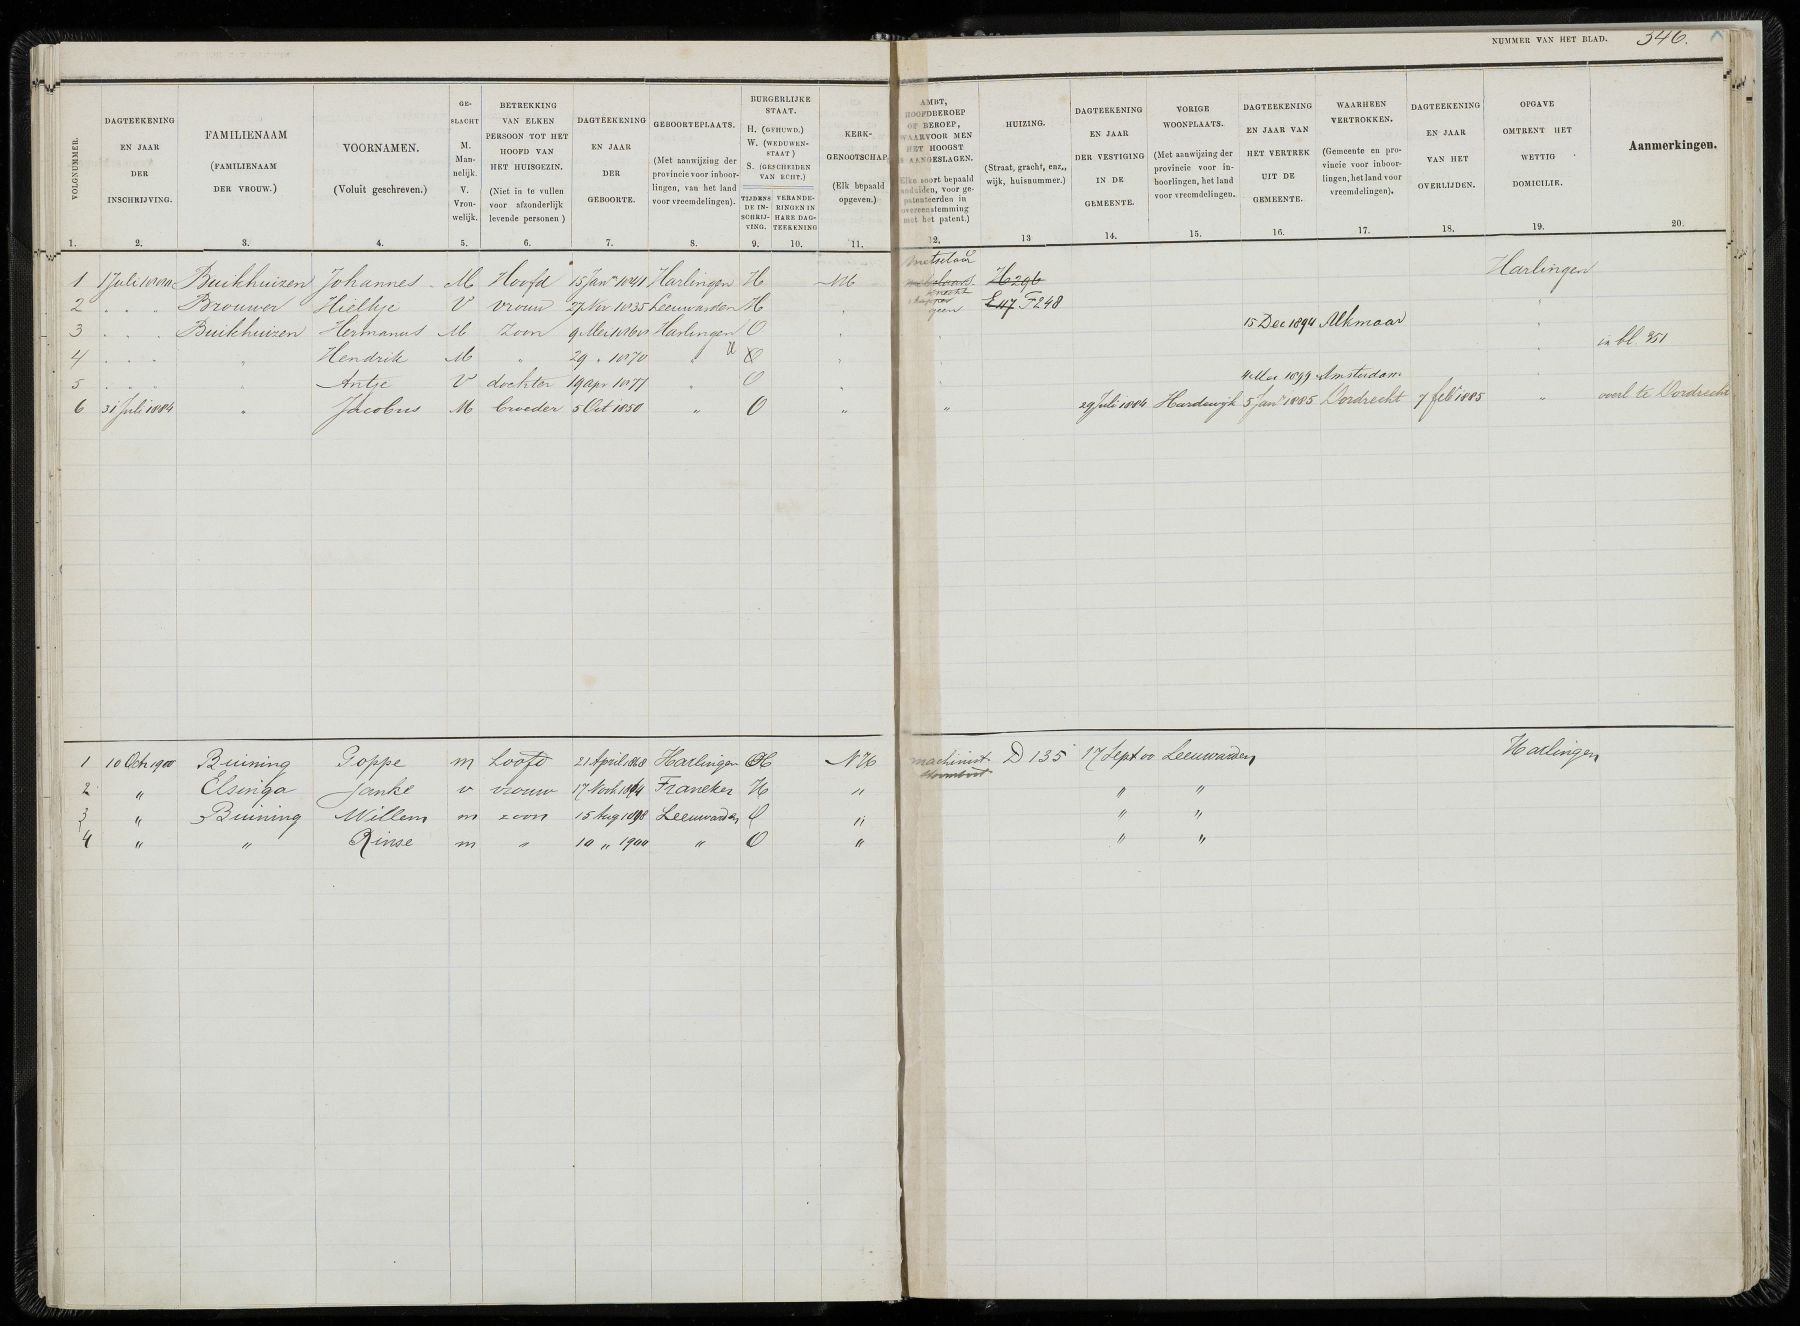 NUMMER VAN HET BLAD. 346.
VOLGNUMMER.
DAGTEEKENING EN JAAR DER INSCHRIJVING.
FAMILIENAAM (FAMILIENAAM DER VROUW.)
VOORNAMEN. (Voluit geschreven.)
GESLACHT M. Mannelijk. V. Vrouwelijk.
BETREKKING VAN ELKEN PERSOON TOT HET HOOFD VAN HET HUISGEZIN. (Niet in te vullen voor afzonderlijk levende personen)
DAGTEEKENING EN JAAR DER GEBOORTE.
GEBOORTEPLAATS. (Met aanwijzing der provincie voor inboorlingen, van het land voor vreemdelingen).
BURGERLIJKE STAAT. H. (GEHUWD.) W. (WEDUWENSTAAT) S. (GESCHEIDEN VAN ECHT.)
TIJDENS DE INSCHRIJVING. VERANDERINGEN IN HARE DAGTEEKENING
KERKGENOOTSCHAP. (Elk bepaald opgeven.)
AMBT, HOOFDBEROEP OF BEROEP, WAARVOOR MEN HET HOOGST IS AANGESLAGEN. (Elke soort bepaald aanduiden, voor gepatenteerden in overeenstemming met het patent.)
HUIZING. (Straat, gracht, enz., wijk, huisnummer.)
DAGTEEKENING EN JAAR DER VESTIGING IN DE GEMEENTE.
VORIGE WOONPLAATS. (Met aanwijzing der provincie voor inboorlingen, het land voor vreemdelingen.
DAGTEEKENING EN JAAR VAN HET VERTREK UIT DE GEMEENTE.
WAARHEEN VERTROKKEN. (Gemeente en provincie voor inboorlingen, het land voor vreemdelingen).
DAGTEEKENING EN JAAR VAN HET OVERLIJDEN.
OPGAVE OMTRENT HET WETTIG DOMICILIE.
Aanmerkingen.
1. 2. 3. 4. 5. 6. 7. 8. 9. 10. 11. 12. 13 14. 15. 16. 17. 18. 19. 20.
metselaar
1 1 Juli 1880 Buikhuizen Johannes M Hoofd 15 Jan 1841 Harlingen H NH knecht H 296 Harlingen
2 " " " Brouwer Hieltje V vrouw 27 Nov 1835 Leeuwarden H " geen E 117 F 248 "
3 " " " Buikhuizen Hermanus M Zoon 9 Mei 1868 Harlingen O " " 15 Dec 1894 Alkmaar "
4 " " " " Hendrik M " 29 " 1870 " H O " " in bl. 351
5 " " " " Antje V dochter 19 apr 1877 " O " " 4 Mei 1899 Amsterdam "
6 31 Juli 1884 " Jacobus M broeder 5 Oct 1850 " O " " 29 Juli 1884 Harderwijk 5 Jan 1885 Dordrecht 7 feb 1885 " overl te Dordrecht
1 10 Oct 1900 Buining Poppe m hoofd 21 April 1868 Harlingen H N H machinist D 135 17 Sept 00 Leeuwarden Harlingen
stoomboot
2 " Elsinga Janke v vrouw 17 Novb 1874 Franeker H " " "
3 " Buining Willem m zoon 15 Aug 1898 Leeuwarden O " " "
4 " " Rinse m " 10 " 1900 " O " " "